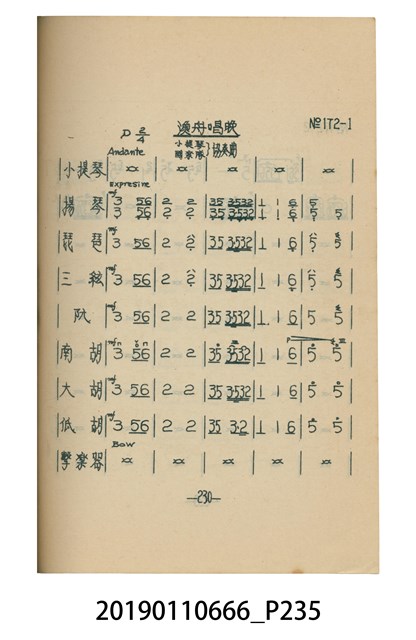 漁舟唱晚
№172-1
D 2/4
小提琴
國樂隊 } 協奏曲
Andante
小提琴 | xx | xx | xx | xx | xx |
Expresive
揚琴 | mf 3 56 | 2 2 | 35 3532 | 1 1 6 | 5 5 |
琵琶 | mf 3 56 | 2 2 | 35 3532 | 1 1 6 | 5 5 |
三絃 | mf 3 56 | 2 2 | 35 3532 | 1 1 6 | 5 5 |
阮 | mf 3 56 | 2 2 | 35 3532 | 1 1 6 | 5 5 |
南胡 | mf 3 56 | 2 2 | 35 3532 | 1 1 6 | 5 5 |
大胡 | mf 3 56 | 2 2 | 35 3532 | 1 1 6 | 5 5 |
低胡 | mf 3 56 | 2 2 | 35 3·2 | 1 1 6 | 5 5 |
Bow
擊樂器 | xx | xx | xx | xx | xx |
—230—
20190110666_P235